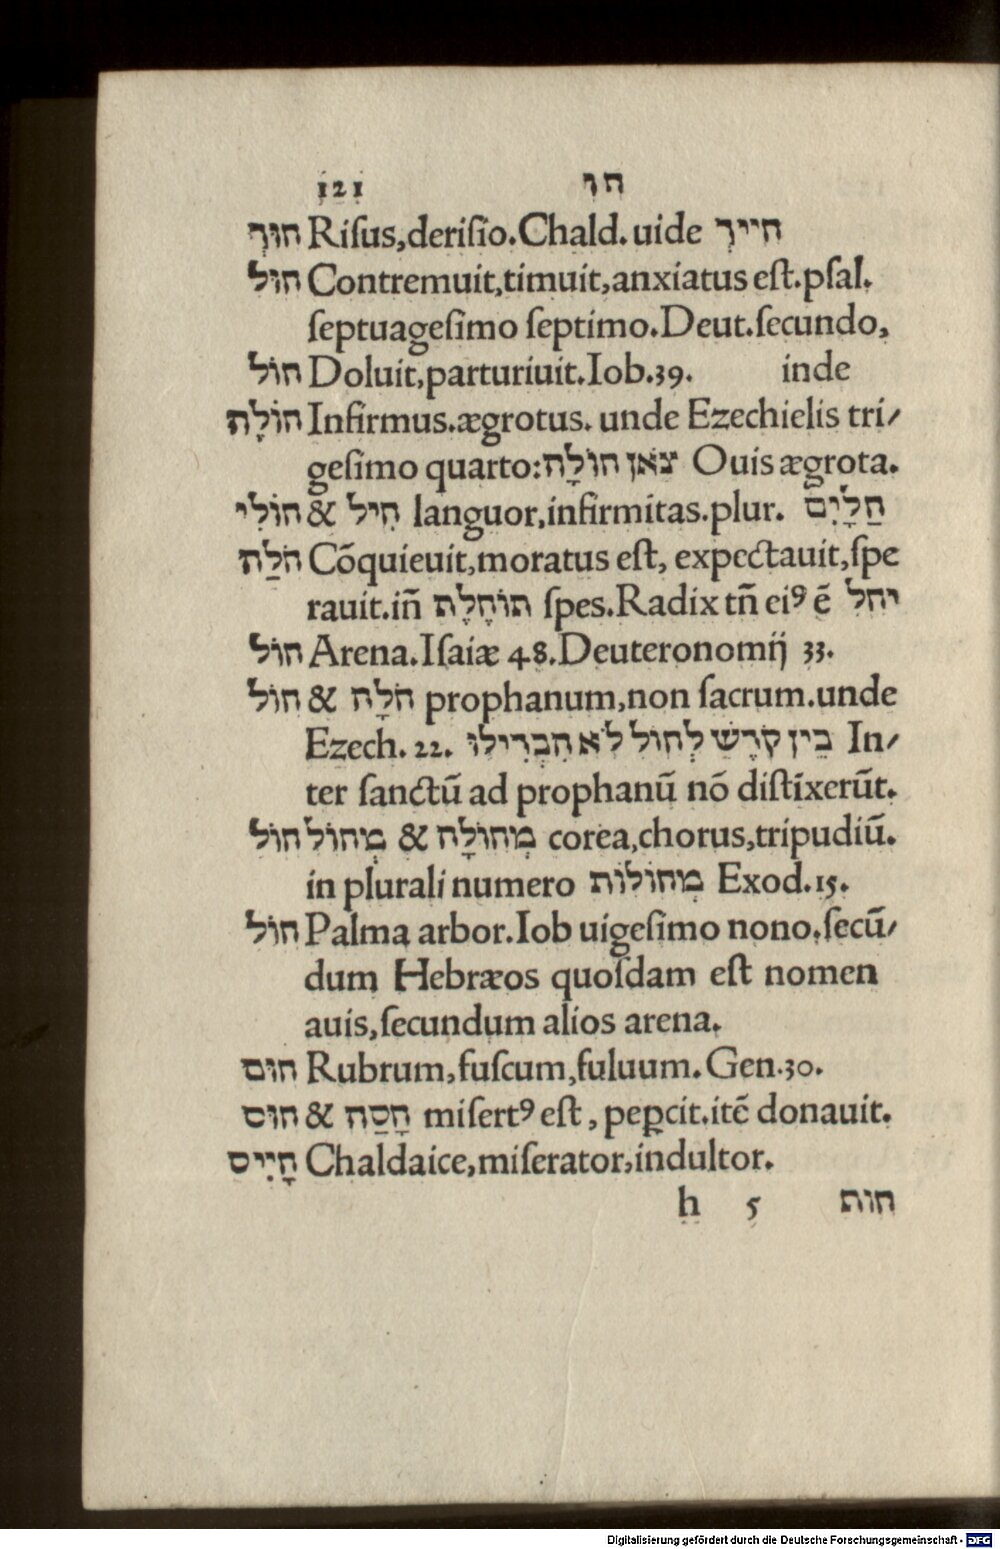 121 חו
חוּךְ Riſus,deriſio.Chald.uide חייךְ
חוּל Contremuit,timuit,anxiatus eſt.pſal.
ſeptuageſimo ſeptimo.Deut.ſecundo,
חוֹל Doluit,parturiuit.Iob.39. inde
חוֹלָה Infirmus.ægrotus. unde Ezechielis tri/
geſimo quarto:צאֹן חוֹלָה Ouis ægrota.
חוֹלִי & חִיל languor,infirmitas.plur. חַלָיִם
חֹלַה Cõquieuit,moratus eſt, expectauit,ſpe
rauit.iñ תוֹחֶלֶת ſpes.Radix tñ eiꝰ ẽ יחל
חוֹל Arena.Iſaiæ 48.Deuteronomij 33.
חוֹל & חֹלָה prophanum,non ſacrum.unde
Ezech.22. בֵין קֹרֶשׁ לְחוֹל לֹא הִבְרִילוּ In/
ter ſanctũ ad prophanũ nõ diſtĩxerũt.
חוֹל מְחוֹל & מְחוֹלָה corea,chorus,tripudiũ.
in plurali numero מְחוֹלוֹת Exod.15.
חוֹל Palma arbor.Iob uigeſimo nono.ſecũ/
dum Hebræos quoſdam eſt nomen
auis,ſecundum alios arena.
חוּם Rubrum,fuſcum,fuluum.Gen.30.
חוּס & חָסַה miſertꝰ eſt, peꝑcit.itẽ donauit.
חָיִיס Chaldaice,miſerator,indultor.
h 5 חות
Digitalisierung gefördert durch die Deutsche Forschungsgemeinschaft - DFG